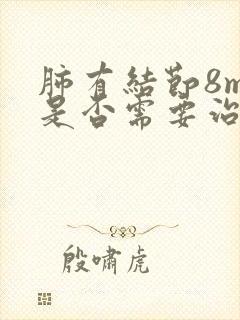 肺有結節8m
是否需要治
殷嘯虎